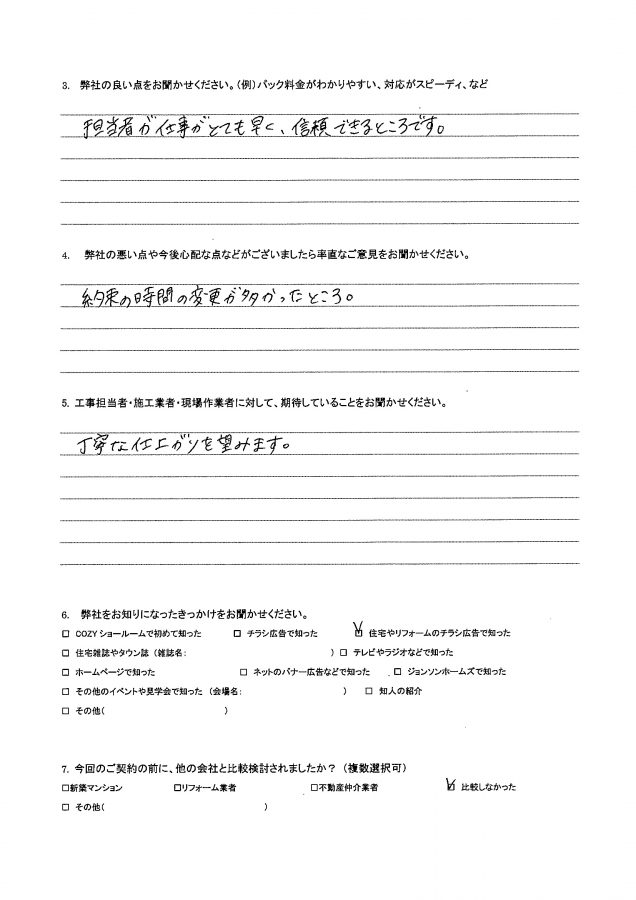 3. 弊社の良い点をお聞かせください。(例)パック料金がわかりやすい、対応がスピーディ、など
担当者が仕事がとても早く、信頼できるところです。
4. 弊社の悪い点や今後心配な点などがございましたら率直なご意見をお聞かせください。
約束の時間の変更が多かったところ。
5. 工事担当者・施工業者・現場作業者に対して、期待していることをお聞かせください。
丁寧な仕上がりを望みます。
6. 弊社をお知りになったきっかけをお聞かせください。
□ COZYショールームで初めて知った □ チラシ広告で知った ☑ 住宅やリフォームのチラシ広告で知った
□ 住宅雑誌やタウン誌（雑誌名: ）□ テレビやラジオなどで知った
□ ホームページで知った □ ネットのバナー広告などで知った □ ジョンソンホームズで知った
□ その他のイベントや見学会で知った（会場名: ） □ 知人の紹介
□ その他( )
7. 今回のご契約の前に、他の会社と比較検討されましたか？（複数選択可）
□新築マンション □リフォーム業者 □不動産仲介業者 ☑ 比較しなかった
□ その他( )